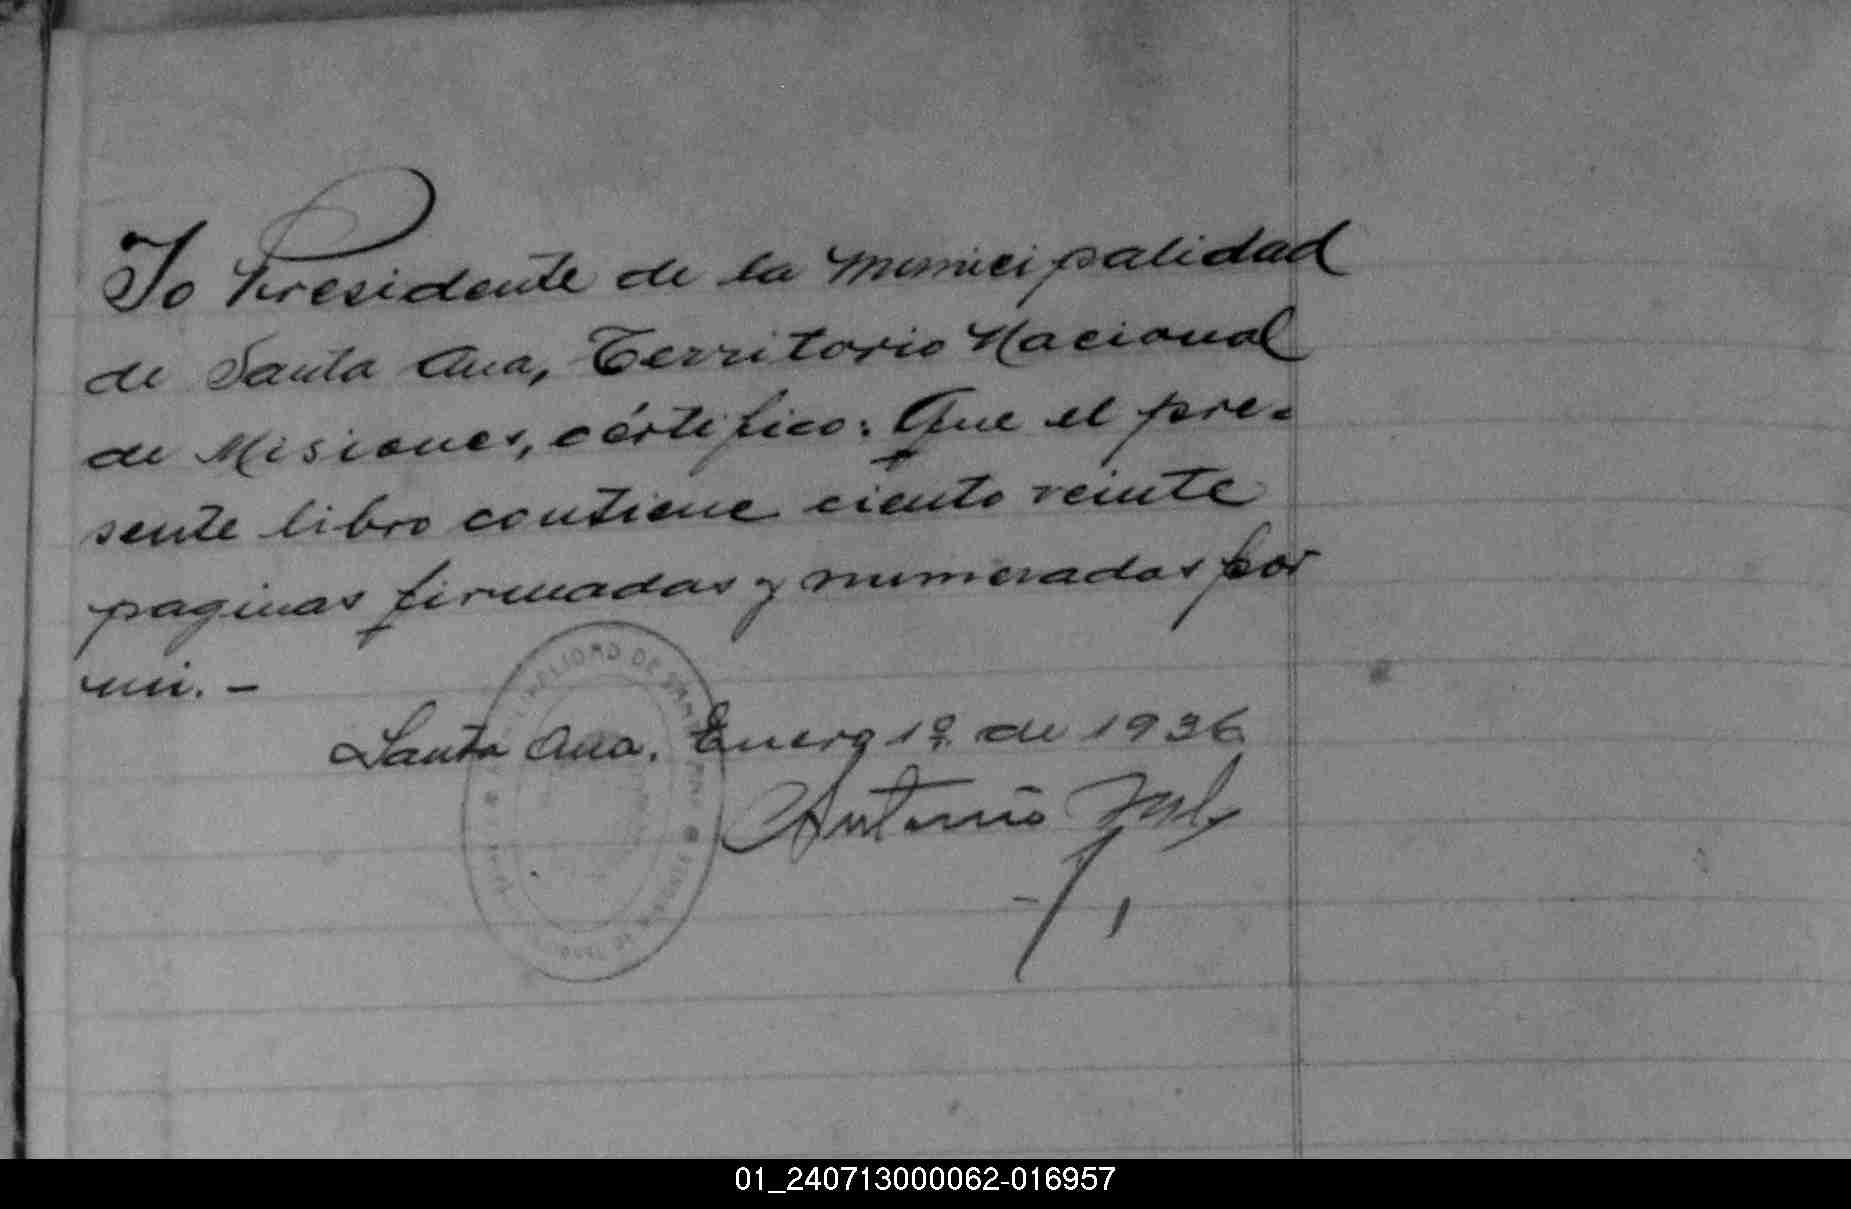 Yo Presidente de la Municipalidad
de Santa Ana, Territorio Nacional
de Misiones, cértifico: Que el pre-
sente libro contiene ciento veinte
paginas firmadas y numeradas por
mi. -
Santa Ana, Enero 1º de 1936
Antonio
01_240713000062-016957